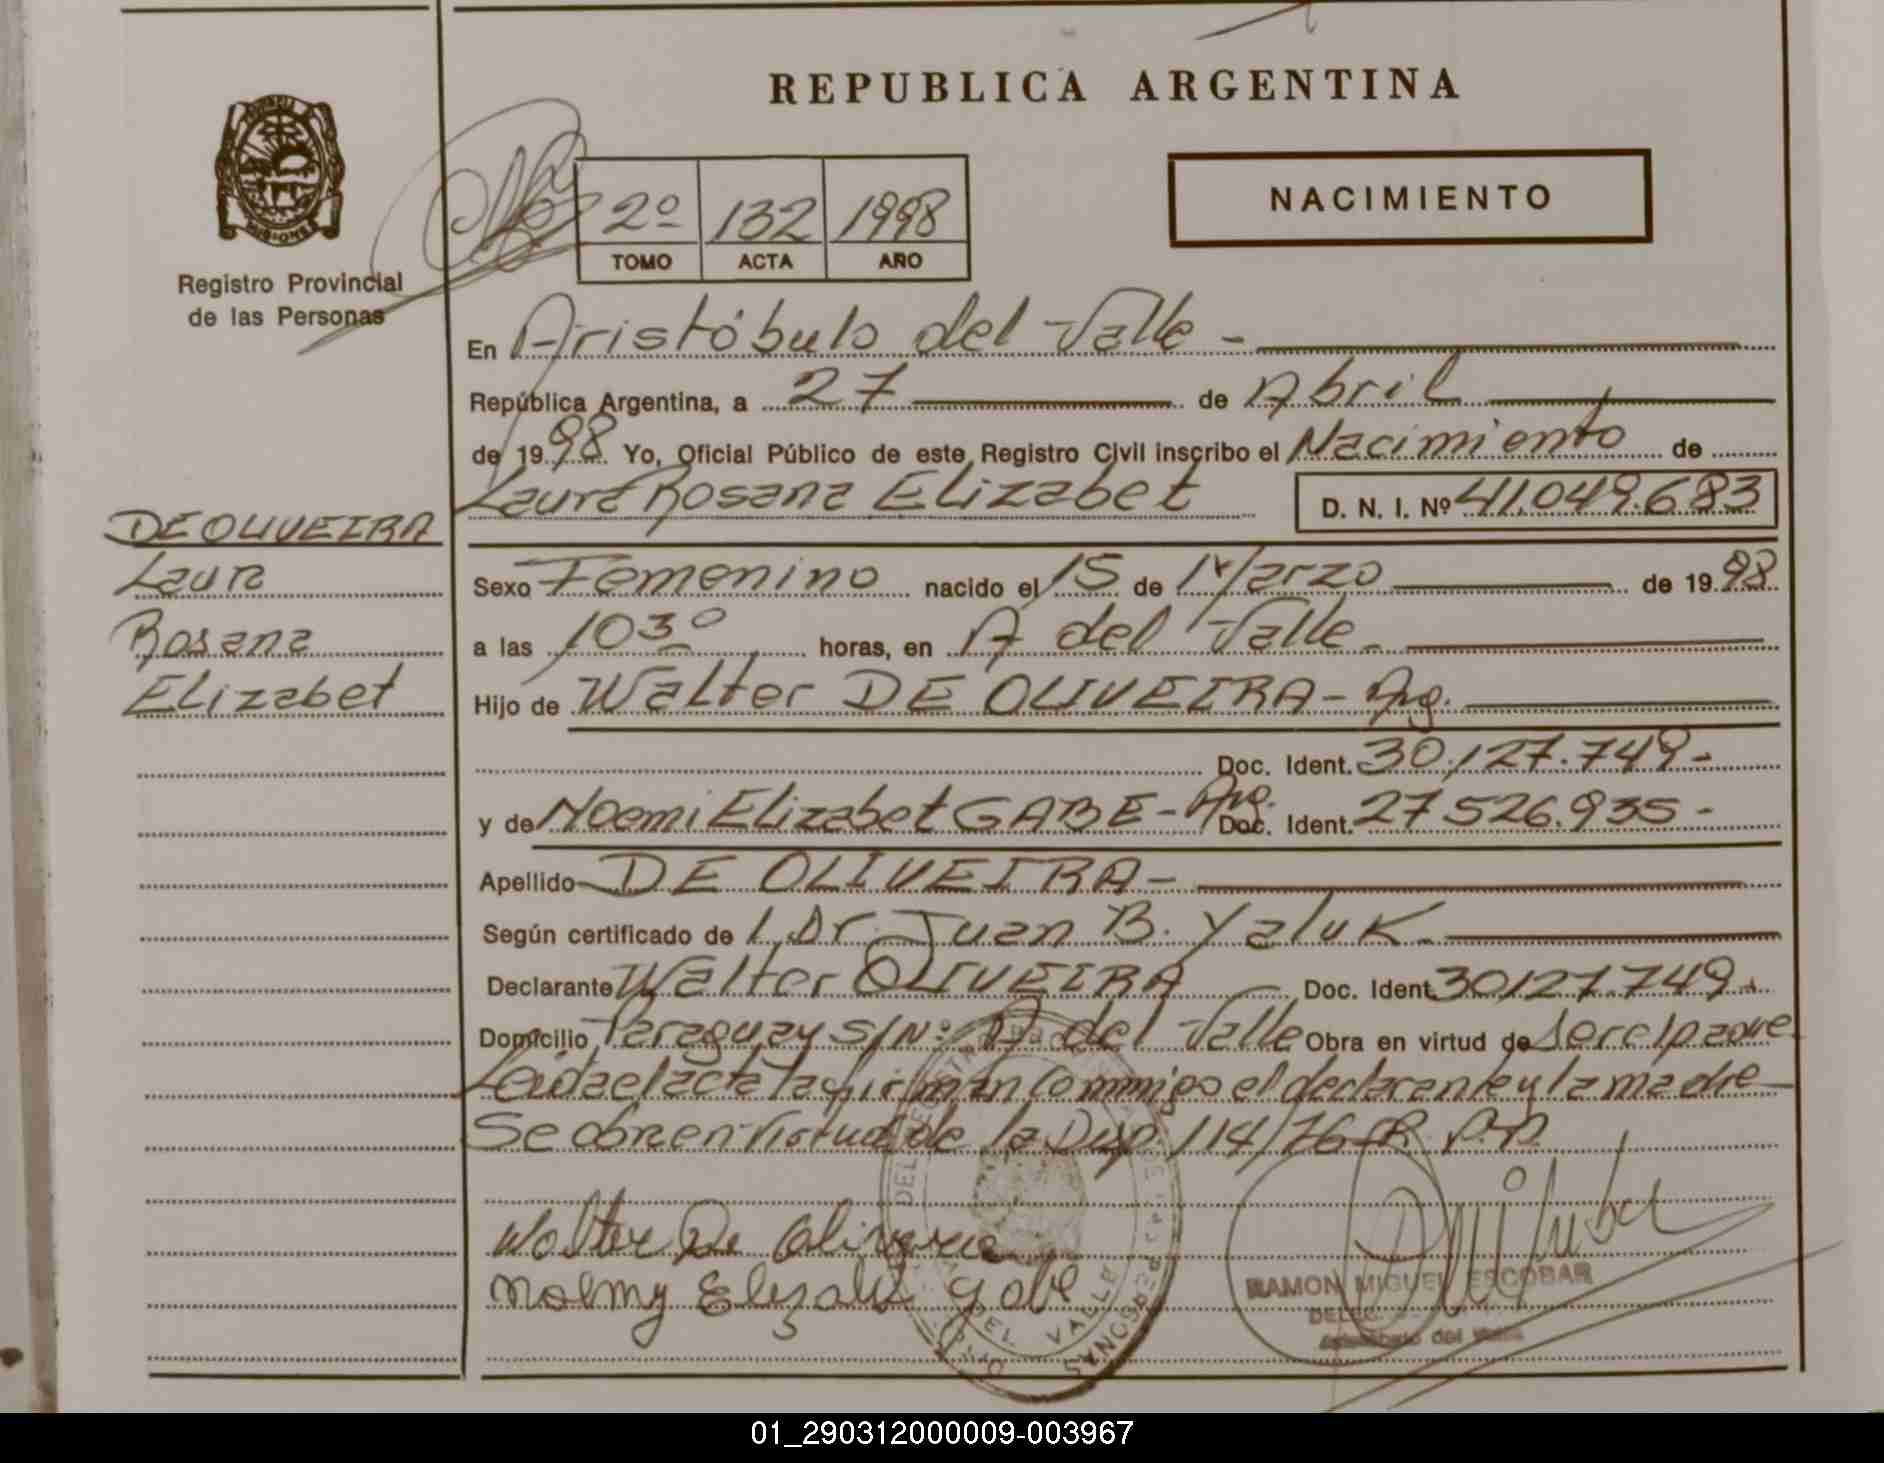 REPUBLICA ARGENTINA
MISIONES
Registro Provincial
de las Personas
2º 132 1998
TOMO ACTA AÑO
NACIMIENTO
En Aristóbulo del Valle -
República Argentina, a 27 de Abril
de 1998 Yo, Oficial Público de este Registro Civil inscribo el Nacimiento de
Laura Rosana Elizabet D. N. I. Nº 41.049.683
DE OLIVEIRA
Laura
Rosana
Elizabet
Sexo Femenino nacido el 15 de Marzo de 1998
a las 1030 horas, en A del Valle -
Hijo de Walter DE OLIVEIRA - Arg.
Doc. Ident. 30.127.749 -
y de Noemi Elizabet GABE - Arg. Doc. Ident. 27.526.935 -
Apellido DE OLIVEIRA -
Según certificado de 1, Dr. Juan B. Yaluk -
Declarante Walter OLIVEIRA Doc. Ident 30127.749 -
Domicilio Paraguay S/Nº A del Valle Obra en virtud de ser el padre
Leida el acta la firman commigo el declarante y la madre
Se obra en virtud de la Disp. 114/76
Walter De Oliveira
Noemy Elizabet Gabe
DEL VALLE
PERSONAS
RAMON MIGUEL ESCOBAR
DELEG.
Aristóbulo del Valle
01_290312000009-003967